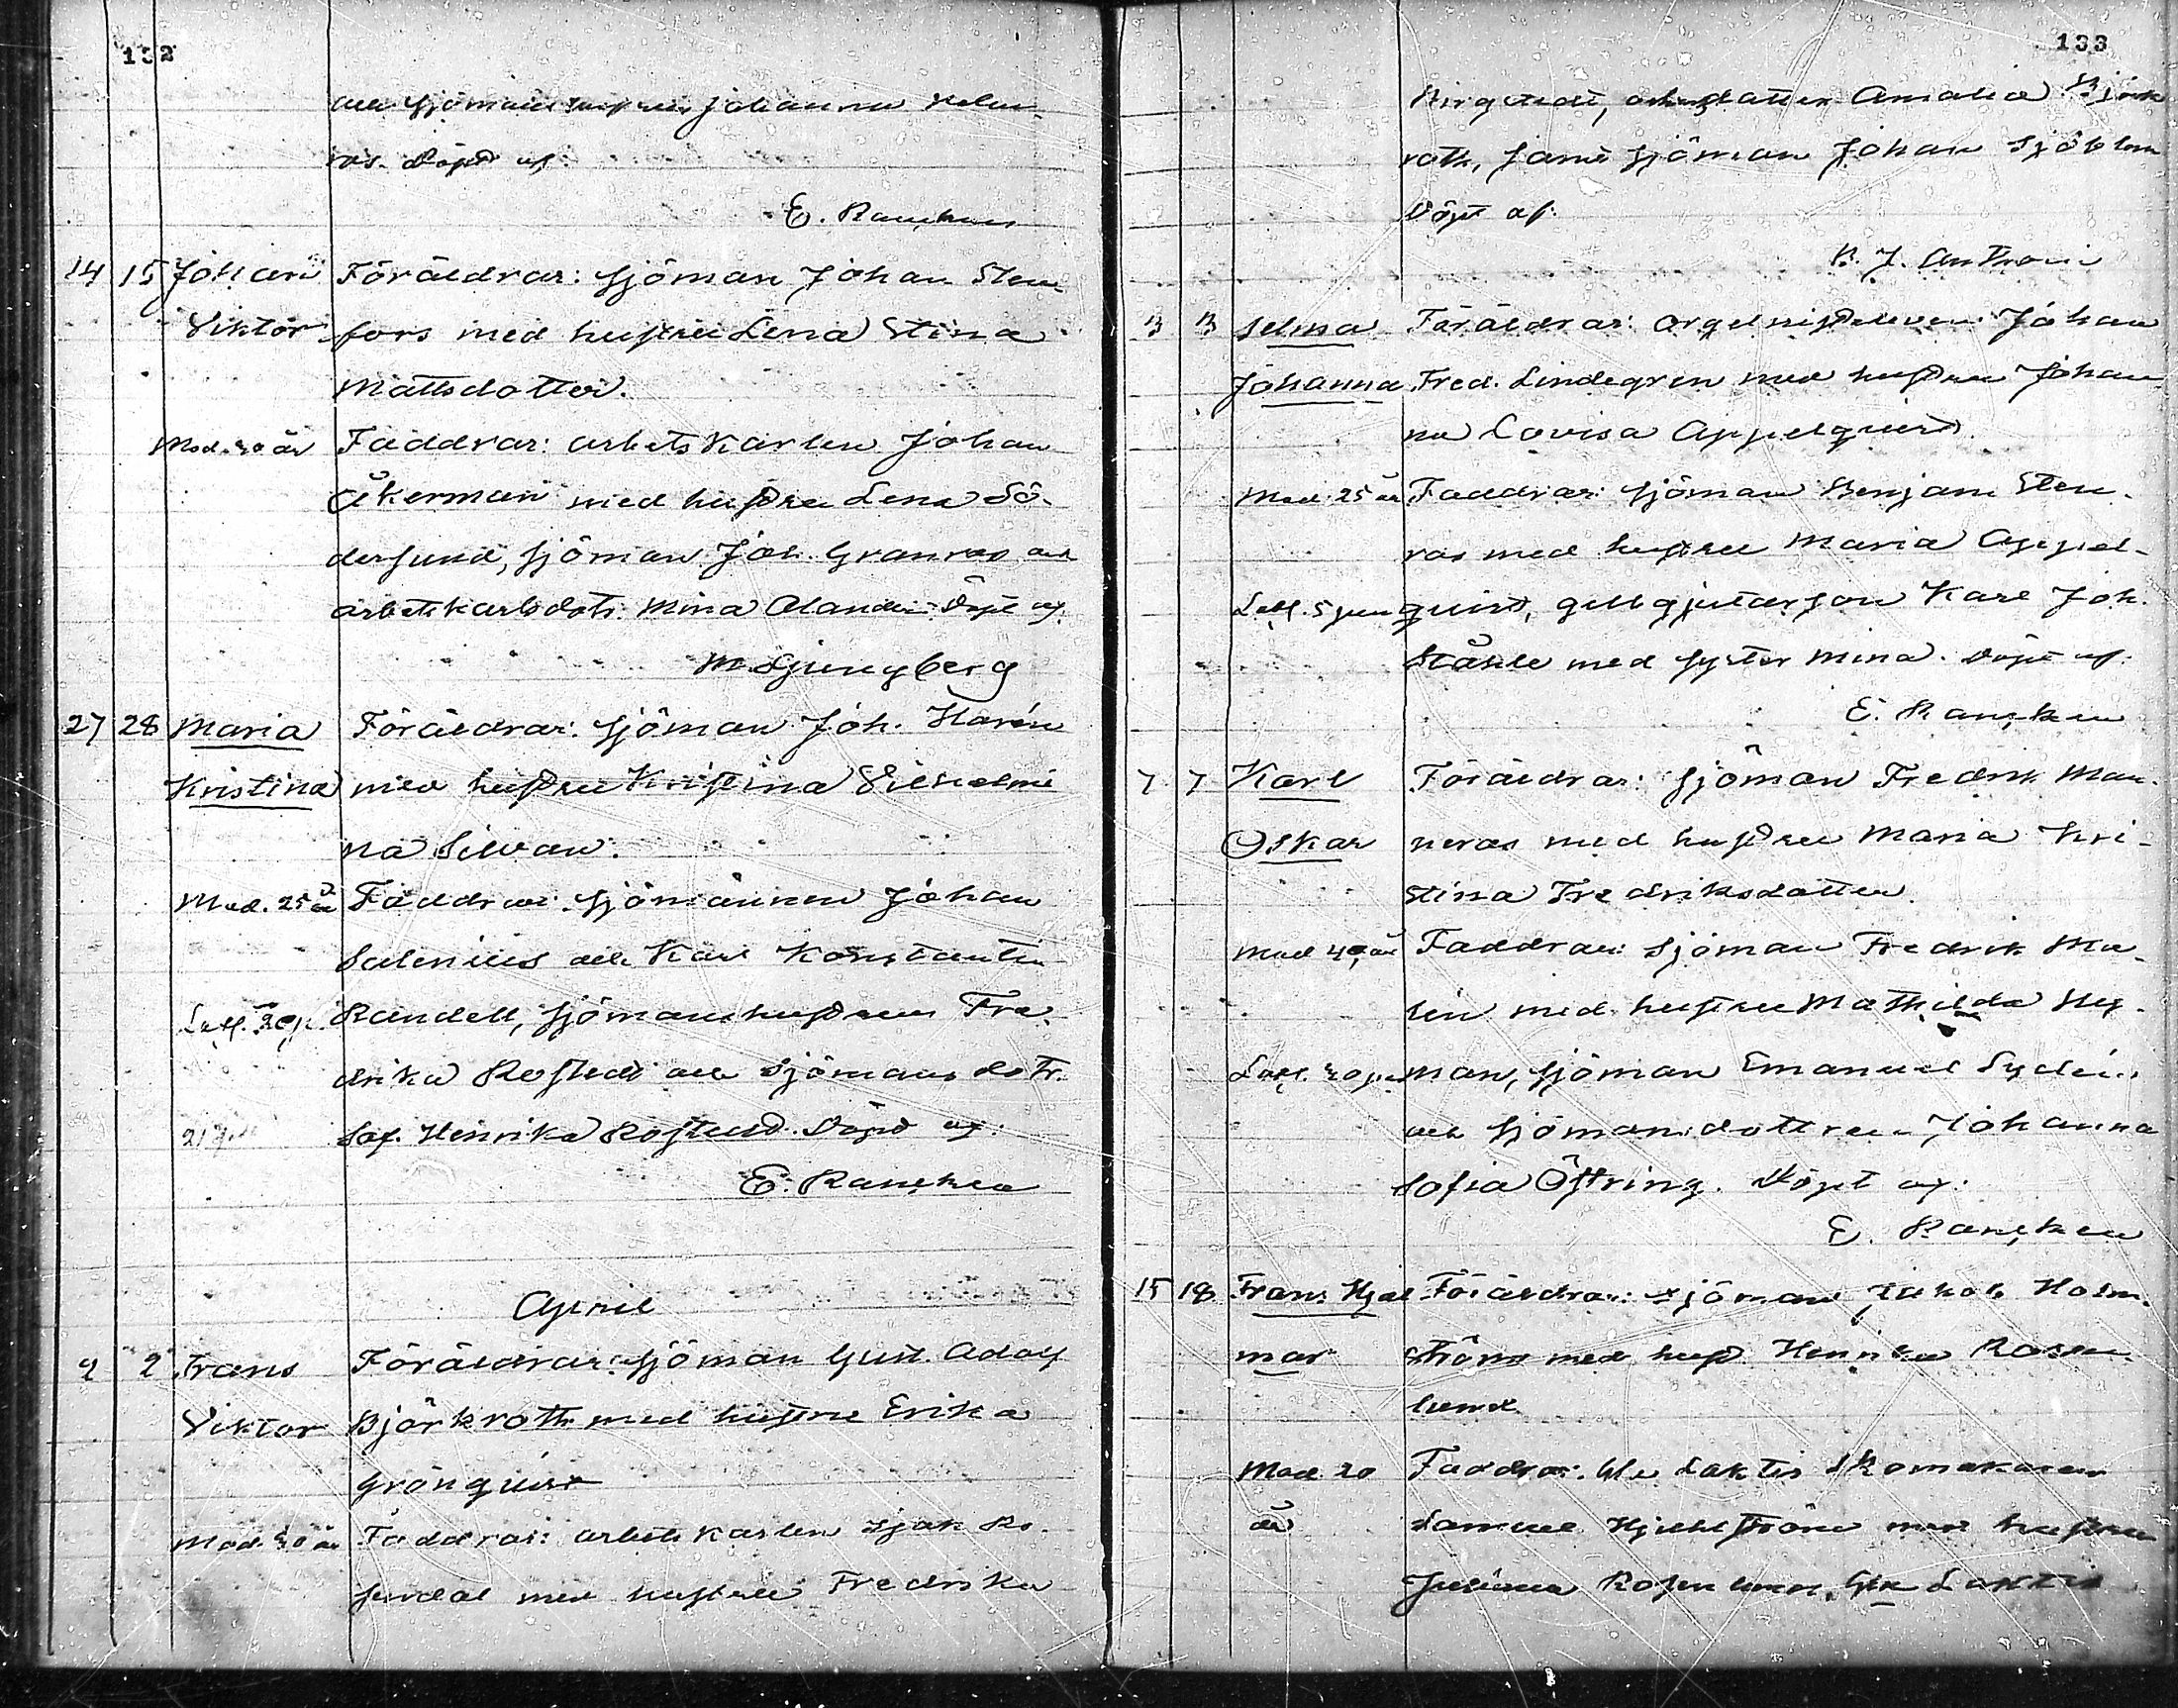 132
och sjömans hustrun Johanna Holm-
ros. Döpt af:
E. Rancken
14 15 Johan Föräldrar: sjöman Johan Sten-
Viktor fors med hustru Lena Stina
Mattsdotter.
Mod. 40 år Faddrar: arbetskarlen Johan
Åkerman med hustru Lena Sö-
derlund, sjöman Joh. Granros och
arbetskarlsdotr. Mina Alander. Döpt af:
M. Ljungberg
27 28 Maria Föräldrar: sjöman Joh. Harén
Kristina med hustru Kristina Vilhelmi
na Silvan.
Mod. 25 år Faddrar: sjömännen Johan
Salenius och Karl Konstantin
Randell, sjömanshustrun Fre-
drika Rostedt och sjömans dotr.
Sof. Henrika Rostedt. Döpt af:
E. Rancken
April
2 2 Frans Föräldrar: sjöman Gust. Adolf
Viktor Björkroth med hustru Erika
Grönquist
Mod. 40 år Faddrar: arbets karlen Isak Ro-
sendal med hustru Fredrika
133
arbetsdotter Amalia Björk
roth, samt sjöman Johan Sjöblom
Döpt af:
3 3 Selma Föräldrar: Orgelnisteleven Johan
Johanna Fred. Lindegren med hustru Johan
na Lovisa Appelquist.
Mod. 25 år Faddrar: sjöman Benjam. Sten-
ros med hustru Maria Appel-
Latt. 5 juni quist, gelbgjutarson Karl Joh.
Ståhle med syster Mina. Döpt af:
E. Rancken
7 7 Karl Föräldrar: sjöman Fredrik Man-
Oskar neros med hustru Maria Kri-
stina Fredriksdotter.
Mod 40 år Faddrar: sjöman Fredrik Ma-
lin med hustru Mathilda Ny-
man, sjöman Emanuel Sydén
och sjömansdottren Johanna
Sofia Östring. Döpt af:
E. Rancken
15 18 Frans Hjal Föräldrar: sjöman Jakob Holm-
mar ström med hust. Henrika Rosen-
lund
Mod. 20 Faddrar: Gla Laktis skomakaren
år Samuel Hjelmström med hustru
Rosenlund, Gla Laktis